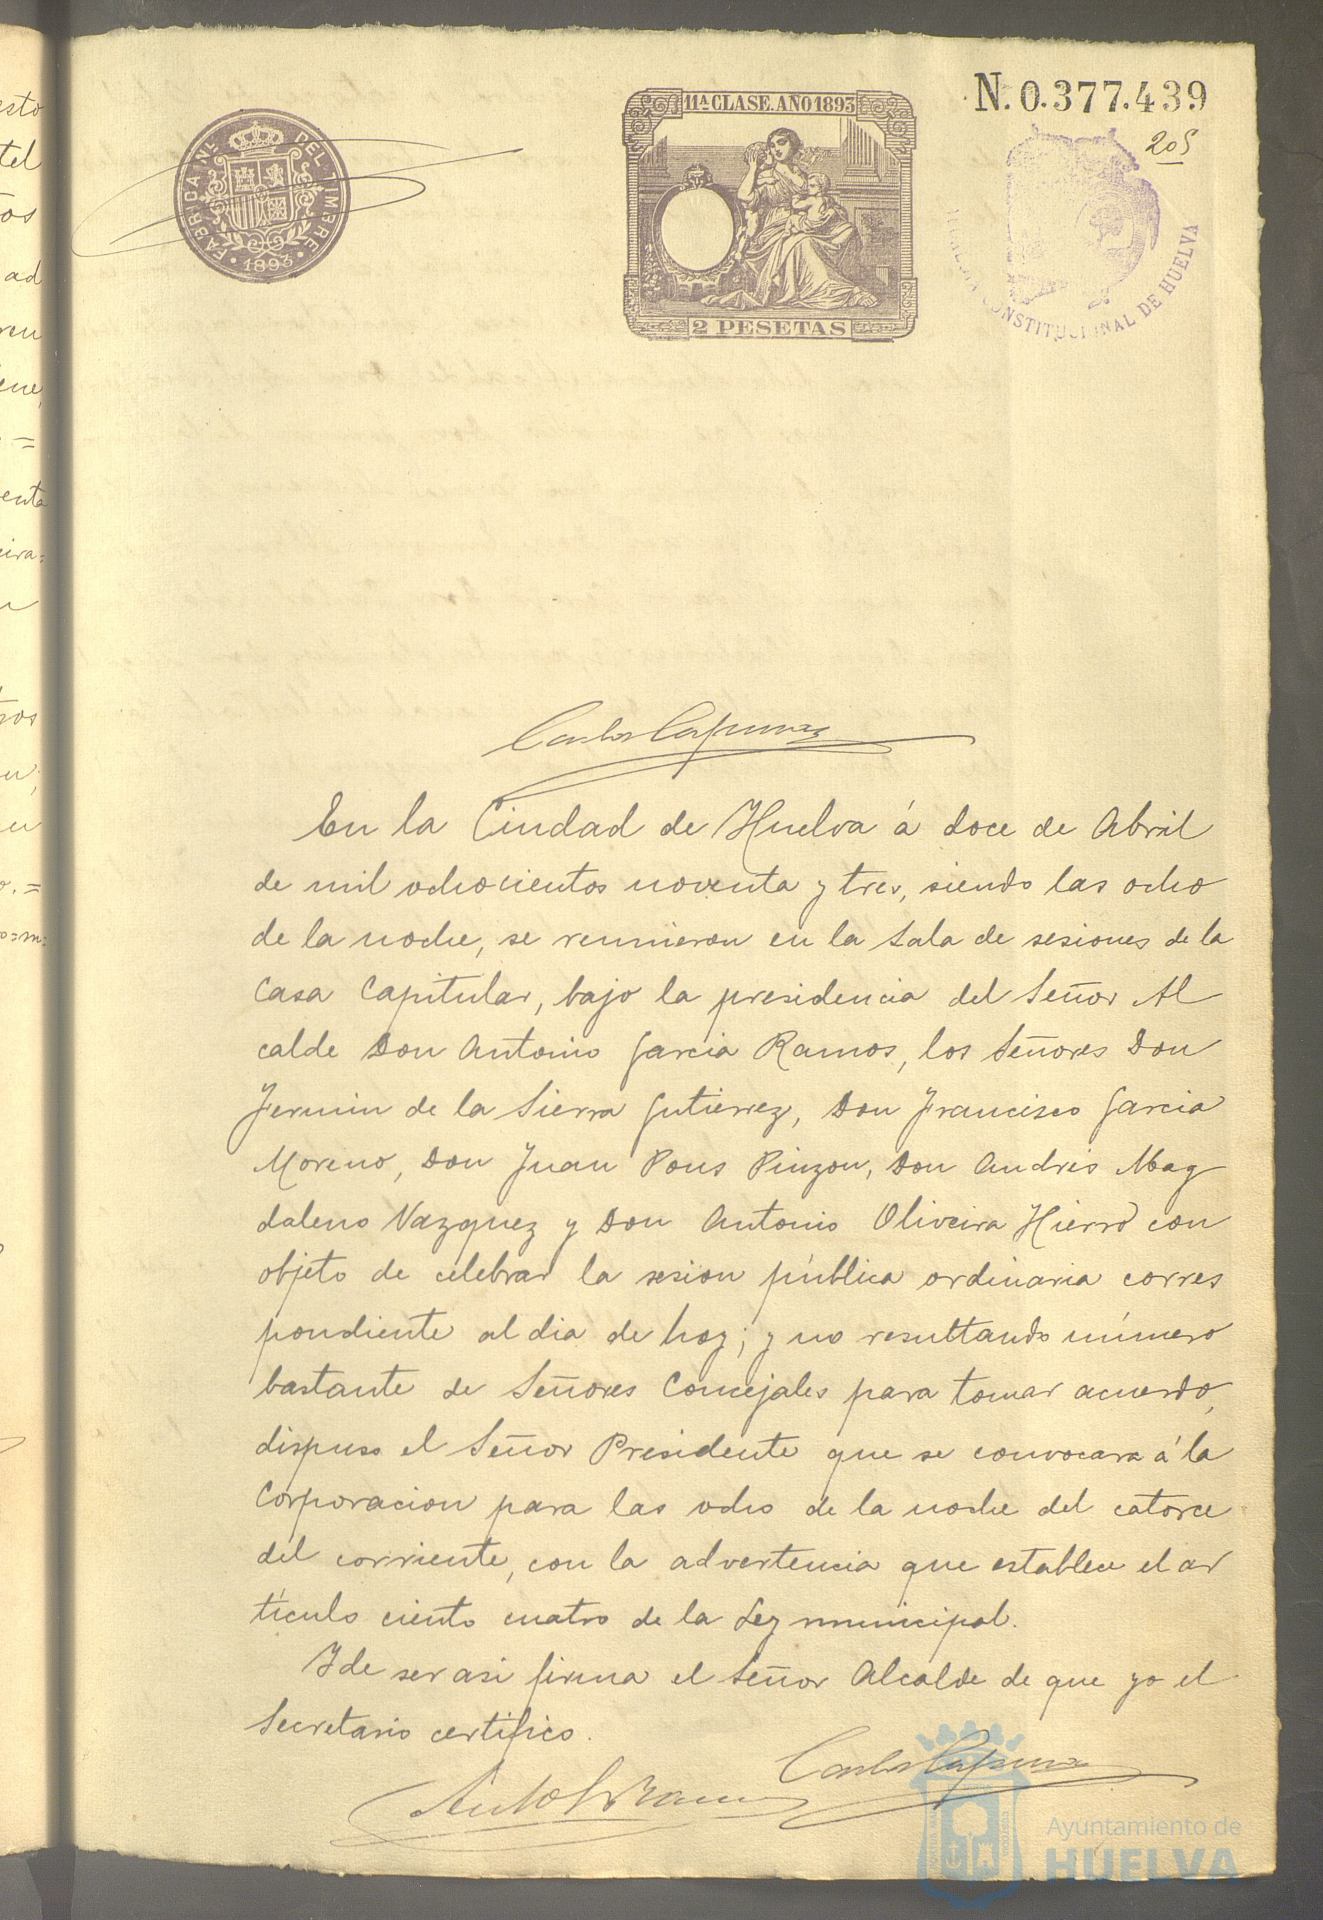 N. 0.377.439
205
FABRICA NL. DEL TIMBRE
1893
11ª CLASE. AÑO 1893
2 PESETAS
CONSTITUCIONAL DE HUELVA
Carlos
En la Ciudad de Huelva á doce de Abril
de mil ochocientos noventa y tres, siendo las ocho
de la noche, se reunieron en la Sala de sesiones de la
Casa Capitular, bajo la presidencia del Señor Al
calde Don Antonio Garcia Ramos, los Señores Don
Fermin de la Sierra Gutierrez, Don Francisco Garcia
Moreno, Don Juan Pons Pinzon, Don Andrés Mag
daleno Vazquez y Don Antonio Oliveira Hierro con
objeto de celebrar la sesion pública ordinaria corres
pondiente al dia de hoy; y no resultando número
bastante de Señores Concejales para tomar acuerdo,
dispuso el Señor Presidente que se convocara á la
Corporacion para las ocho de la noche del catorce
del corriente, con la advertencia que establece el ar
tículo ciento cuatro de la Ley municipal.
Y de ser asi firma el Señor Alcalde de que yo el
Secretario certifico.
Carlos
Ayuntamiento de
HUELVA